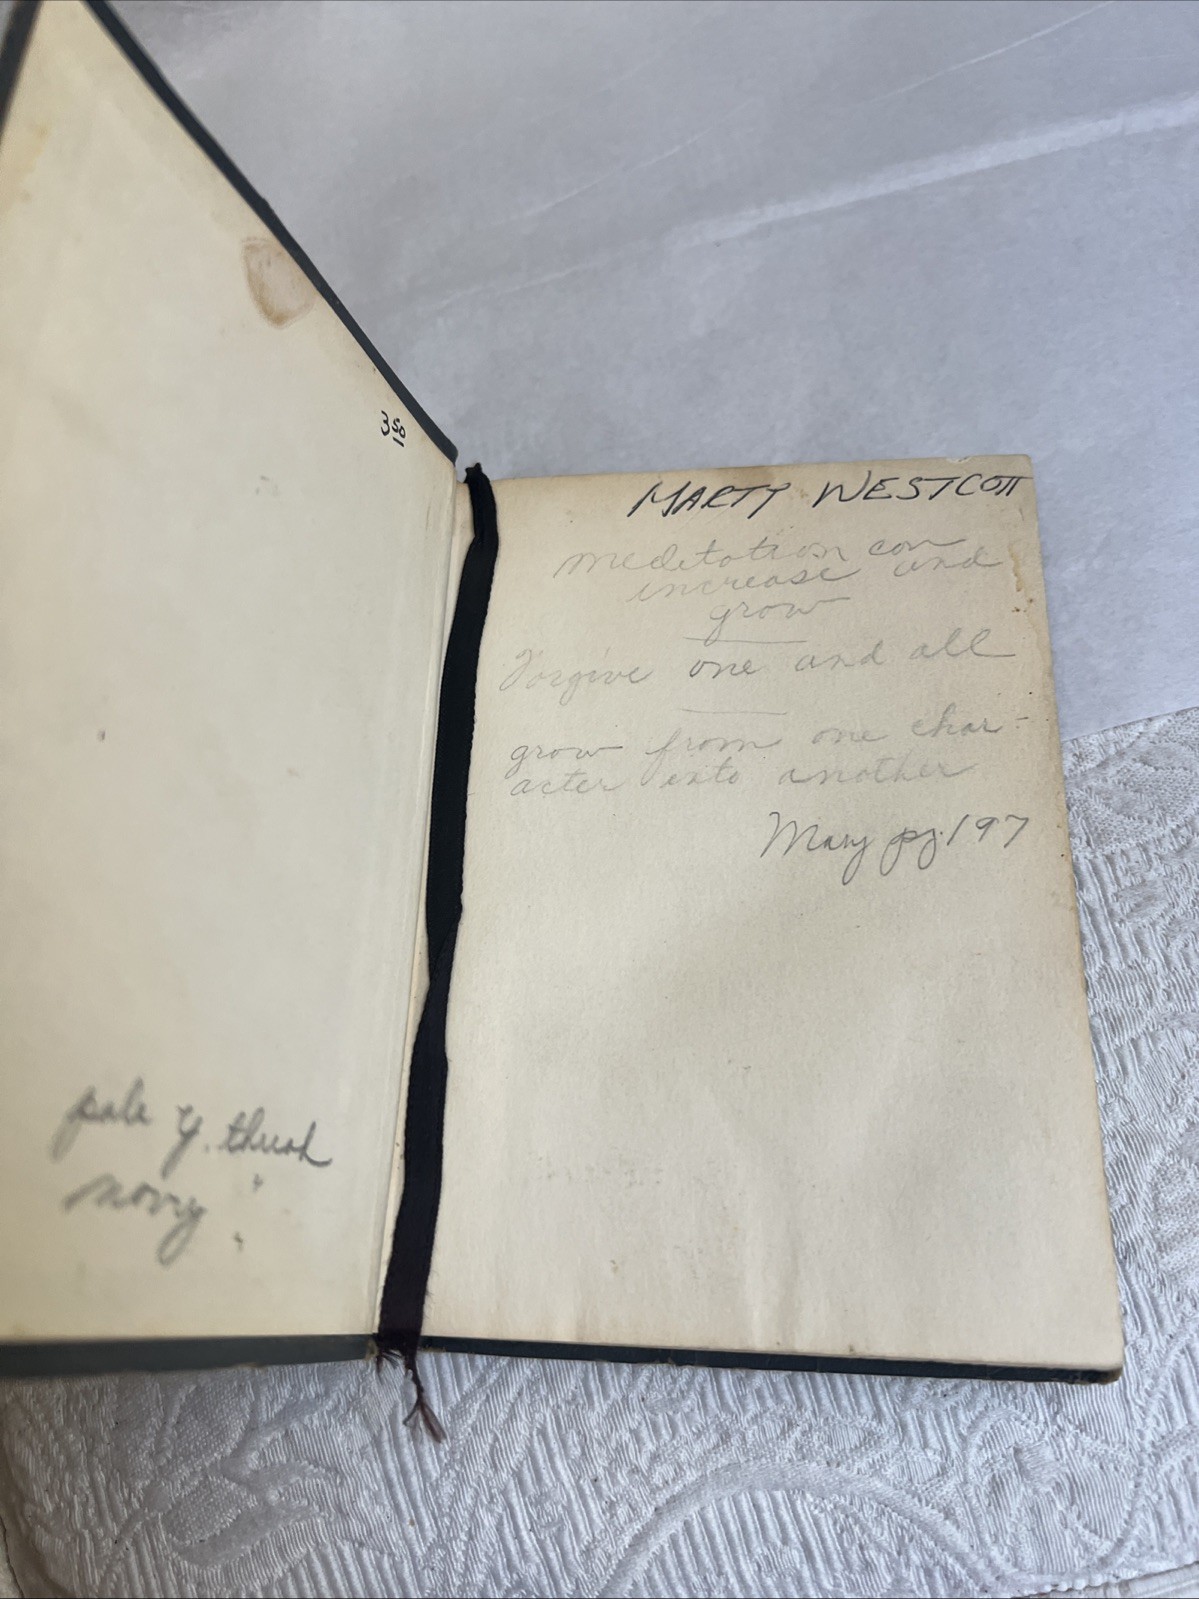 3 50
pale y. thrush
MARTY WESTCOTT
meditation can
increase and
grow
Forgive one and all
grow from one char-
acter into another
Mary pg. 197